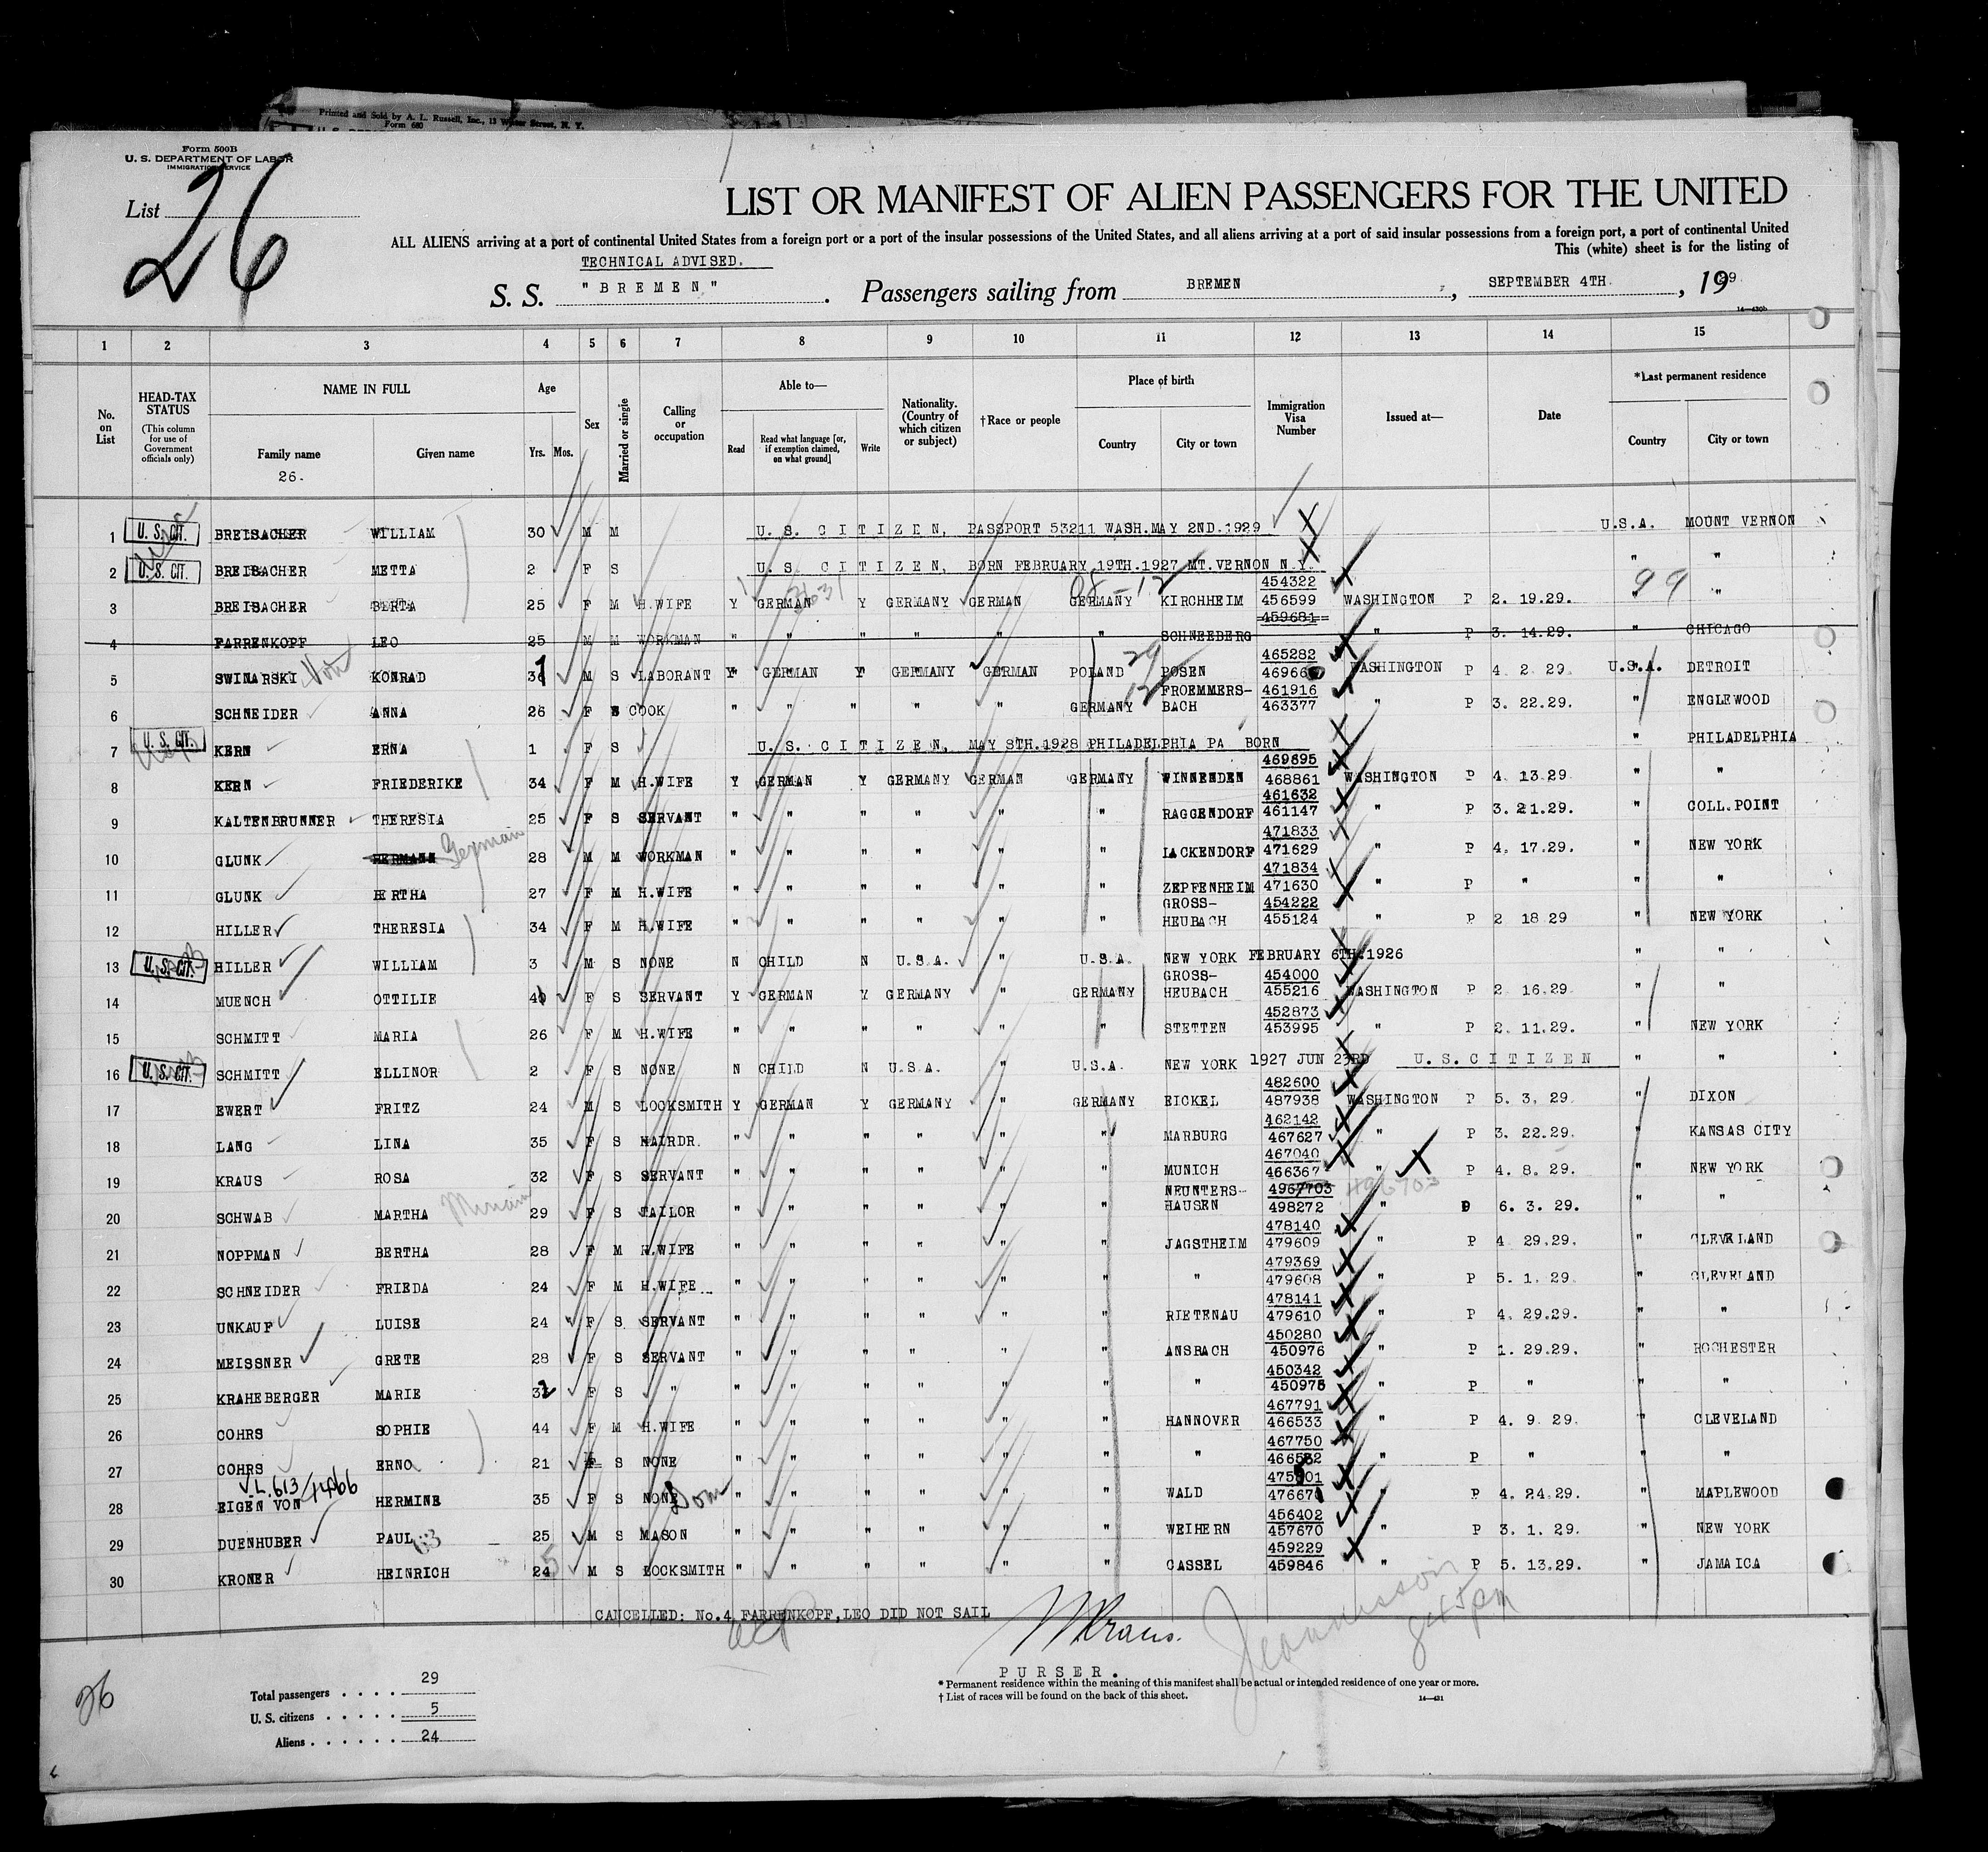 Printed and Sold by A. L. Russell, Inc., 13 Water Street, N. Y.
Form 680
Form 500B
U. S. DEPARTMENT OF LABOR
IMMIGRATION SERVICE
List 26
LIST OR MANIFEST OF ALIEN PASSENGERS FOR THE UNITED
ALL ALIENS arriving at a port of continental United States from a foreign port or a port of the insular possessions of the United States, and all aliens arriving at a port of said insular possessions from a foreign port, a port of continental United
This (white) sheet is for the listing of
TECHNICAL ADVISED.
S. S. "BREMEN". Passengers sailing from BREMEN, SEPTEMBER 4TH., 1929.
14—430b
1 2 3 4 5 6 7 8 9 10 11 12 13 14 15
No. on List
HEAD-TAX STATUS
(This column for use of Government officials only)
NAME IN FULL
Family name
26.
Given name
Age
Yrs. Mos.
Sex
Married or single
Calling or occupation
Able to—
Read
Read what language [or, if exemption claimed, on what ground]
Write
Nationality. (Country of which citizen or subject)
†Race or people
Place of birth
Country
City or town
Immigration Visa Number
Issued at—
Date
*Last permanent residence
Country
City or town
1 U. S. CIT. BREISACHER WILLIAM 30 M M U. S. CITIZEN, PASSPORT 53211 WASH.MAY 2ND.1929 U.S.A. MOUNT VERNON
2 U. S. CIT. BREISACHER METTA 2 F S U. S. CITIZEN, BORN FEBRUARY 19TH.1927 MT.VERNON N.Y. " "
454322
3 BREISACHER BERTA 25 F M H.WIFE Y GERMAN Y GERMANY GERMAN GERMANY KIRCHHEIM 456599 WASHINGTON P 2. 19.29. " "
3631 08-12 99
459681
4 FARRENKOPF LEO 25 M M WORKMAN " " " " " " SCHNEEBERG " P 3. 14.29. " CHICAGO
465282
5 SWINARSKI KONRAD M S LABORANT Y GERMAN Y GERMANY GERMAN POLAND POSEN WASHINGTON P 4. 2. 29. U.S.A. DETROIT
FROEMMERS- 461916
6 SCHNEIDER ANNA 26 F S COOK " " " " " GERMANY BACH 463377 " P 3. 22.29. " ENGLEWOOD
7 U. S. CIT. KERN ERNA 1 F S U. S. CITIZEN, MAY 8TH.1928 PHILADELPHIA PA BORN " PHILADELPHIA
469695
8 KERN FRIEDERIKE 34 F M H.WIFE Y GERMAN Y GERMANY GERMAN GERMANY WINNENDEN 468861 WASHINGTON P 4. 13.29. " "
461632
9 KALTENBRUNNER THERESIA 25 F S SERVANT " " " " " " RAGGENDORF 461147 " P 3. 21.29. " COLL.POINT
471833
10 GLUNK HERMANN German 28 M M WORKMAN " " " " " " LACKENDORF 471629 " P 4. 17.29. " NEW YORK
471834
11 GLUNK HERTHA 27 F M H.WIFE " " " " " " ZEPFENHEIM 471630 " P " " "
GROSS- 454222
12 HILLER THERESIA 34 F M H.WIFE " " " " " " HEUBACH 455124 " P 2. 18.29 " NEW YORK
13 U. S. CIT. HILLER WILLIAM 3 M S NONE N CHILD N U.S.A. " U.S.A. NEW YORK FEBRUARY 6TH.1926 " "
GROSS- 454000
14 MUENCH OTTILIE F S SERVANT Y GERMAN Y GERMANY " GERMANY HEUBACH 455216 WASHINGTON P 2. 16.29. " "
452873
15 SCHMITT MARIA 26 F M H.WIFE " " " " " " STETTEN 453995 " P 2. 11.29. " NEW YORK
16 U. S. CIT. SCHMITT ELLINOR 2 F S NONE N CHILD N U.S.A. " U.S.A. NEW YORK 1927 JUN 23RD U.S.CITIZEN " "
482600
17 EWERT FRITZ 24 M S LOCKSMITH Y GERMAN Y GERMANY " GERMANY EICKEL 487938 WASHINGTON P 5. 3. 29. " DIXON
462142
18 LANG LINA 35 F S HAIRDR. " " " " " " MARBURG 467627 " P 3. 22.29. " KANSAS CITY
467040
19 KRAUS ROSA 32 F S SERVANT " " " " " " MUNICH 466367 " P 4. 8. 29. " NEW YORK
NEUNTERS- 4967703 496703
20 SCHWAB MARTHA Miriam 29 F S TAILOR " " " " " " HAUSEN 498272 " P 6. 3. 29. " "
478140
21 NOPPMAN BERTHA 28 F M H.WIFE " " " " " " JAGSTHEIM 479609 " P 4. 29.29. " CLEVELAND
479369
22 SCHNEIDER FRIEDA 24 F M H.WIFE " " " " " " " 479608 " P 5. 1. 29. " CLEVELAND
478141
23 UNKAUF LUISE 24 F S SERVANT " " " " " " RIETENAU 479610 " P 4. 29.29. " "
450280
24 MEISSNER GRETE 28 F S SERVANT " " " " " " ANSBACH 450976 " P 1. 29.29. " ROCHESTER
450342
25 KRAHEBERGER MARIE 32 F S " " " " " " " " 450975 " P " " "
467791
26 COHRS SOPHIE 44 F M H.WIFE " " " " " " HANNOVER 466533 " P 4. 9. 29. " CLEVELAND
467750
27 COHRS ERNO 21 S NONE " " " " " " " 466532 " P " " "
V.L. 613/1466
28 EIGEN VON HERMINE 35 F S NONE Dom " " " " " " WALD " P 4. 24.29. " MAPLEWOOD
456402
29 DUENHUBER PAUL 25 M S MASON " " " " " " WEIHERN 457670 " P 3. 1. 29. " NEW YORK
459229
30 KRONER HEINRICH 24 5 M S LOCKSMITH " " " " " " CASSEL 459846 " P 5. 13.29. " JAMAICA
CANCELLED: No.4 FARRENKOPF,LEO DID NOT SAIL
PURSER.
845pm
26
Total passengers . . . . 29
U. S. citizens . . . . . 5
Aliens . . . . . . 24
* Permanent residence within the meaning of this manifest shall be actual or intended residence of one year or more.
† List of races will be found on the back of this sheet.
14—431